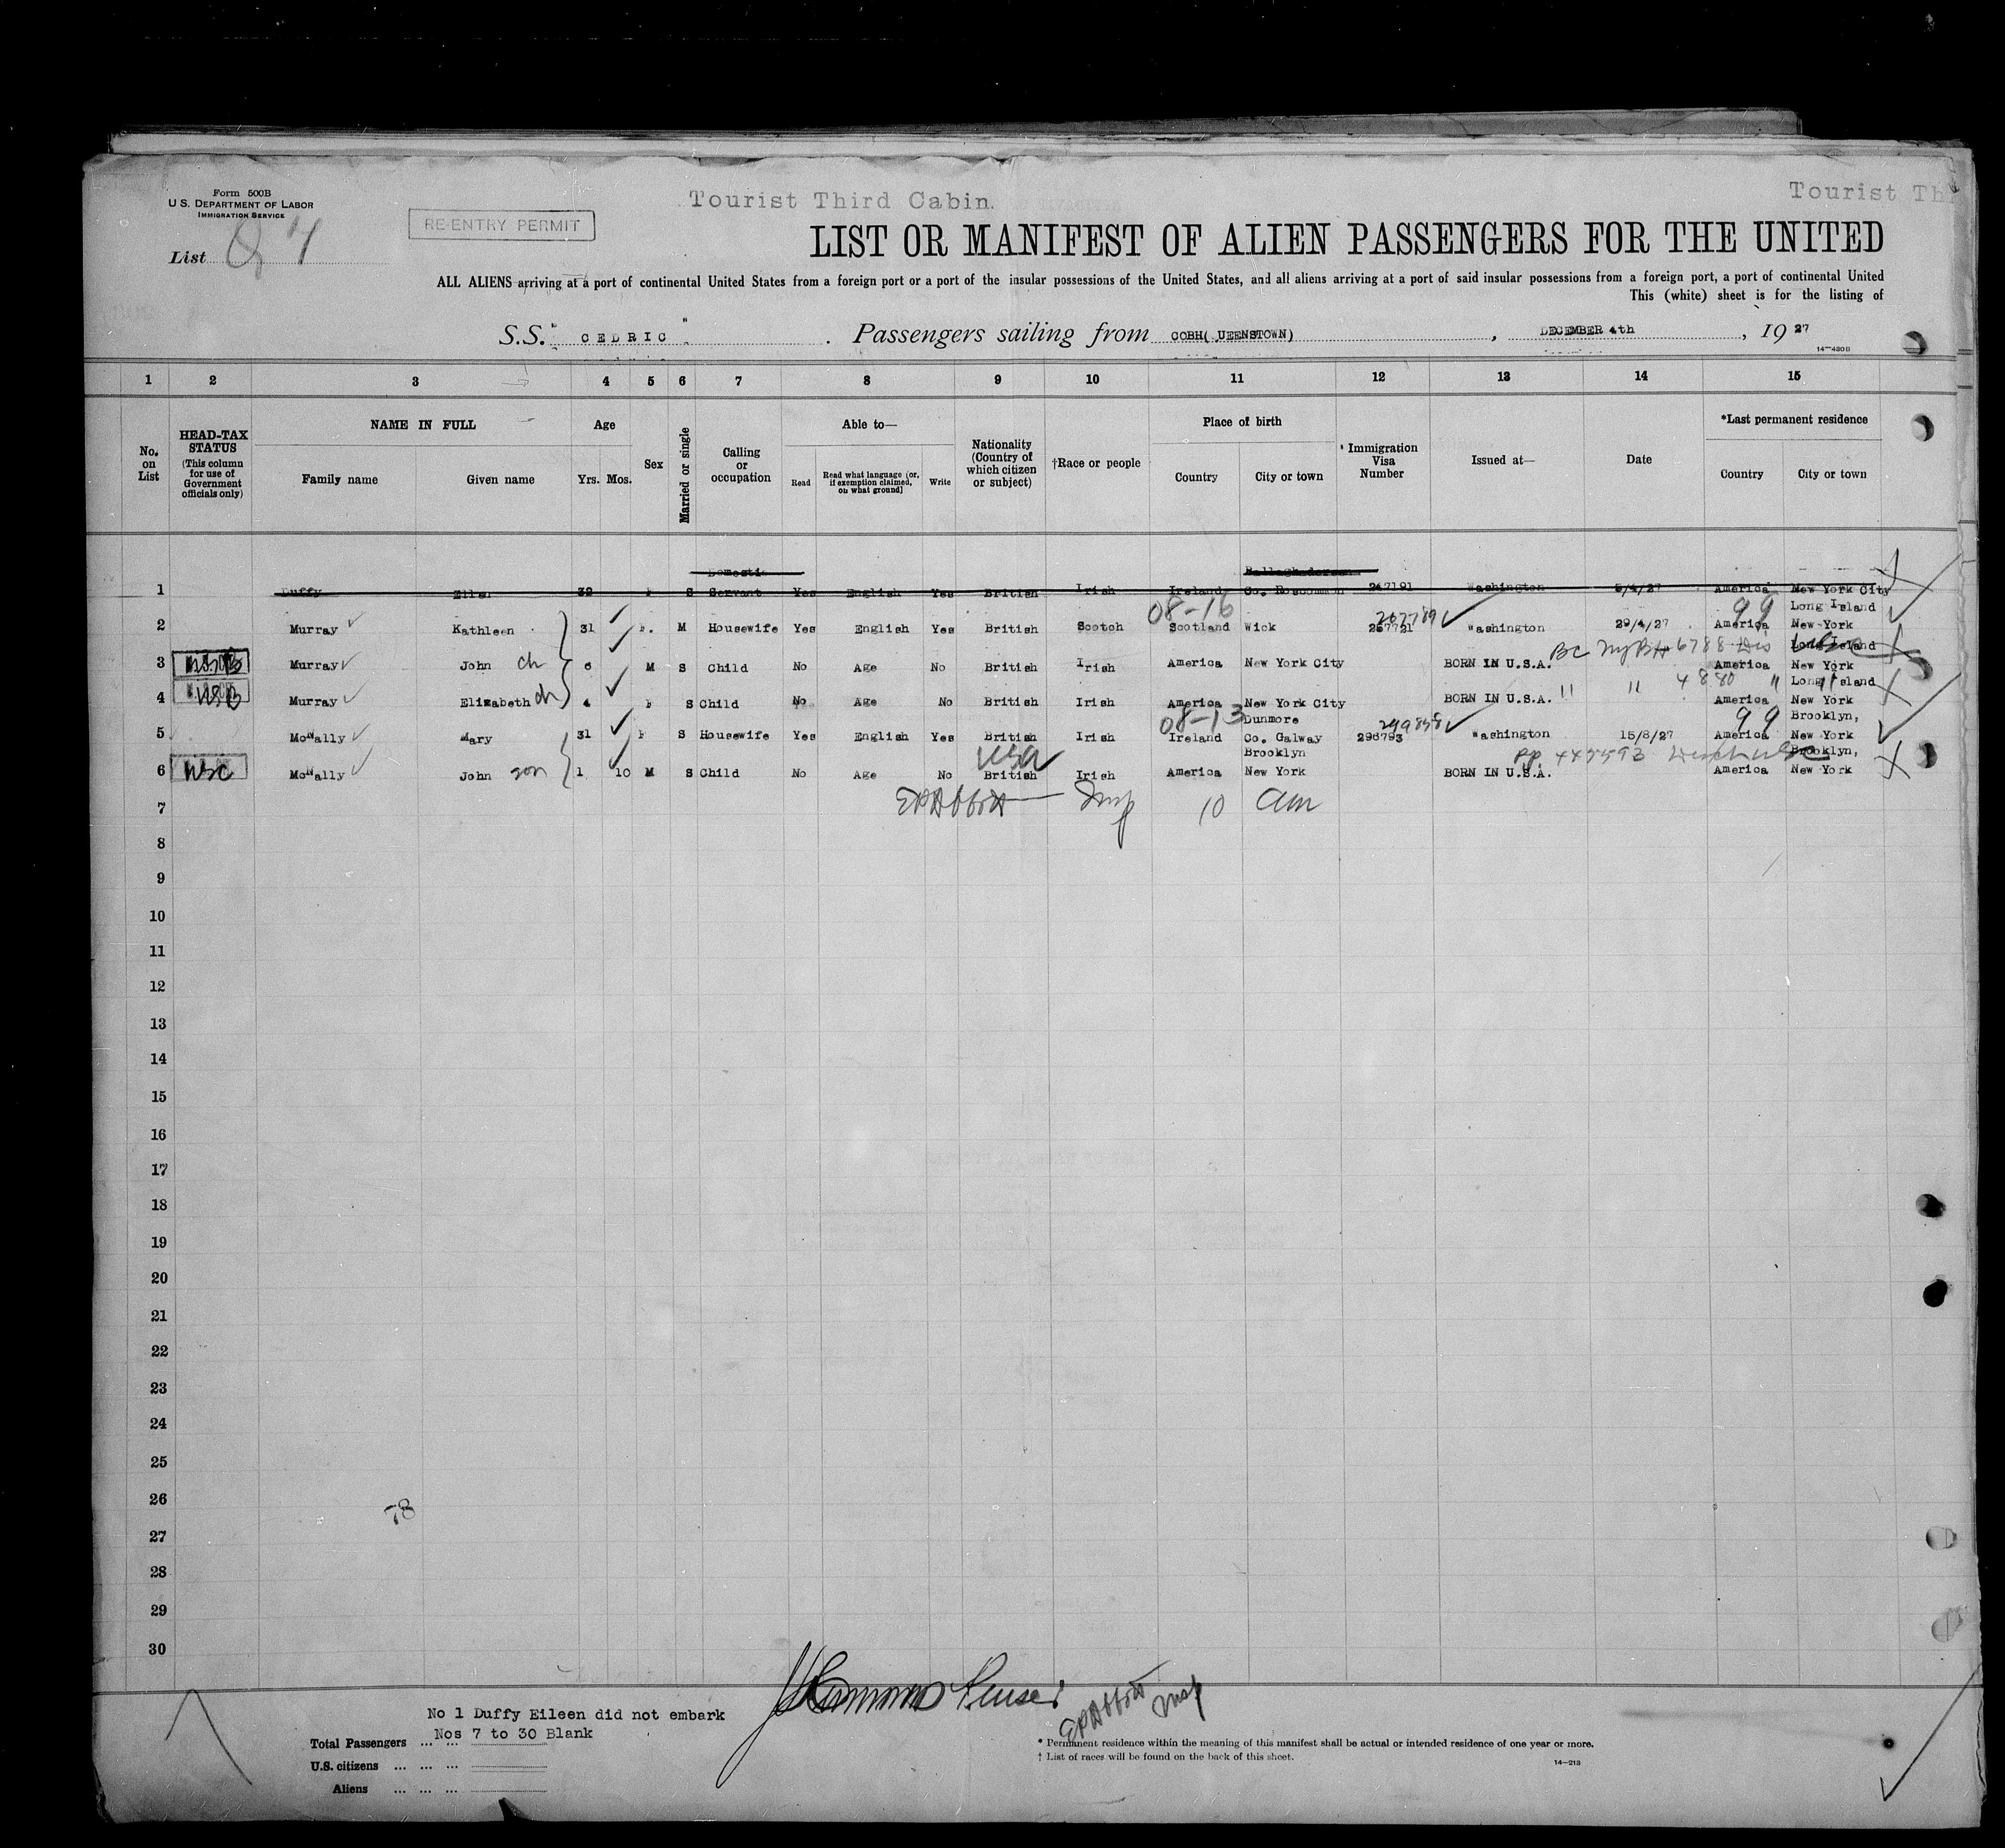 Form 500B
U.S. DEPARTMENT OF LABOR
IMMIGRATION SERVICE
List
RE-ENTRY PERMIT
Tourist Third Cabin.
Tourist Th
LIST OR MANIFEST OF ALIEN PASSENGERS FOR THE UNITED
ALL ALIENS arriving at a port of continental United States from a foreign port or a port of the insular possessions of the United States, and all aliens arriving at a port of said insular possessions from a foreign port, a port of continental United
This (white) sheet is for the listing of
S.S. "CEDRIC". Passengers sailing from COBH( UEENSTOWN), DECEMBER 4th, 19 27
14—430B
1 2 3 4 5 6 7 8 9 10 11 12 13 14 15
No. on List
HEAD-TAX STATUS (This column for use of Government officials only)
NAME IN FULL
Family name Given name
Age
Yrs. Mos.
Sex
Married or single
Calling or occupation
Able to—
Read Read what language (or, if exemption claimed, on what ground) Write
Nationality (Country of which citizen or subject)
†Race or people
Place of birth
Country City or town
Immigration Visa Number
Issued at—
Date
*Last permanent residence
Country City or town
Domestic Ballaghadereen
1 Duffy Ellen 32 F S Servant Yes English Yes British Irish Ireland Co. Roscommon 267191 Washington 5/4/27 America New York City
08-16 267789 99 Long Island
2 Murray Kathleen 31 F. M Housewife Yes English Yes British Scotch Scotland Wick 267721 Washington 29/4/27 America New York
BC NyBH 6788 Long Island
3 Murray John ch 6 M S Child No Age No British Irish America New York City BORN IN U.S.A. America New York
" " 4880 " " Long Island
4 Murray Elizabeth ch 4 F S Child No Age No British Irish America New York City BORN IN U.S.A. America New York
08-13 Dunmore 299858 99 Brooklyn,
5 McNally Mary 31 F S Housewife Yes English Yes British Irish Ireland Co. Galway 296793 Washington 15/8/27 America New York
USA Brooklyn Brooklyn,
6 USC McNally John son 1 10 M S Child No Age No British Irish America New York BORN IN U.S.A. America New York
EAAbbott Insp 10 am
7
8
9
10
11
12
13
14
15
16
17
18
19
20
21
22
23
24
25
26
78
27
28
29
30
No 1 Duffy Eileen did not embark
Nos 7 to 30 Blank
Total Passengers ... ...
U.S. citizens ... ... ...
Aliens ... ... ...
EAAbbott Insp
* Permanent residence within the meaning of this manifest shall be actual or intended residence of one year or more.
† List of races will be found on the back of this sheet.
14—213